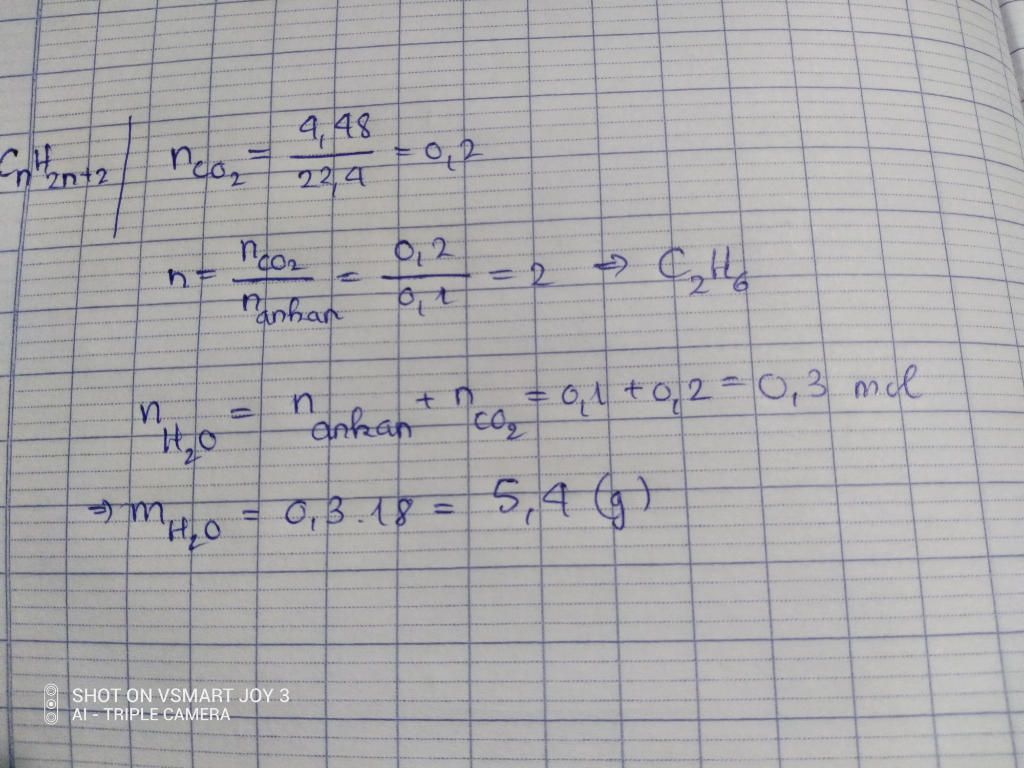 CnH2n+2 | nCO2 = 4,48/22,4 = 0,2
n = nCO2/nankan = 0,2/0,1 = 2 ⇒ C2H6
nH2O = nankan + nCO2 = 0,1 + 0,2 = 0,3 mol
⇒ mH2O = 0,3.18 = 5,4 (g)
SHOT ON VSMART JOY 3
AI - TRIPLE CAMERA